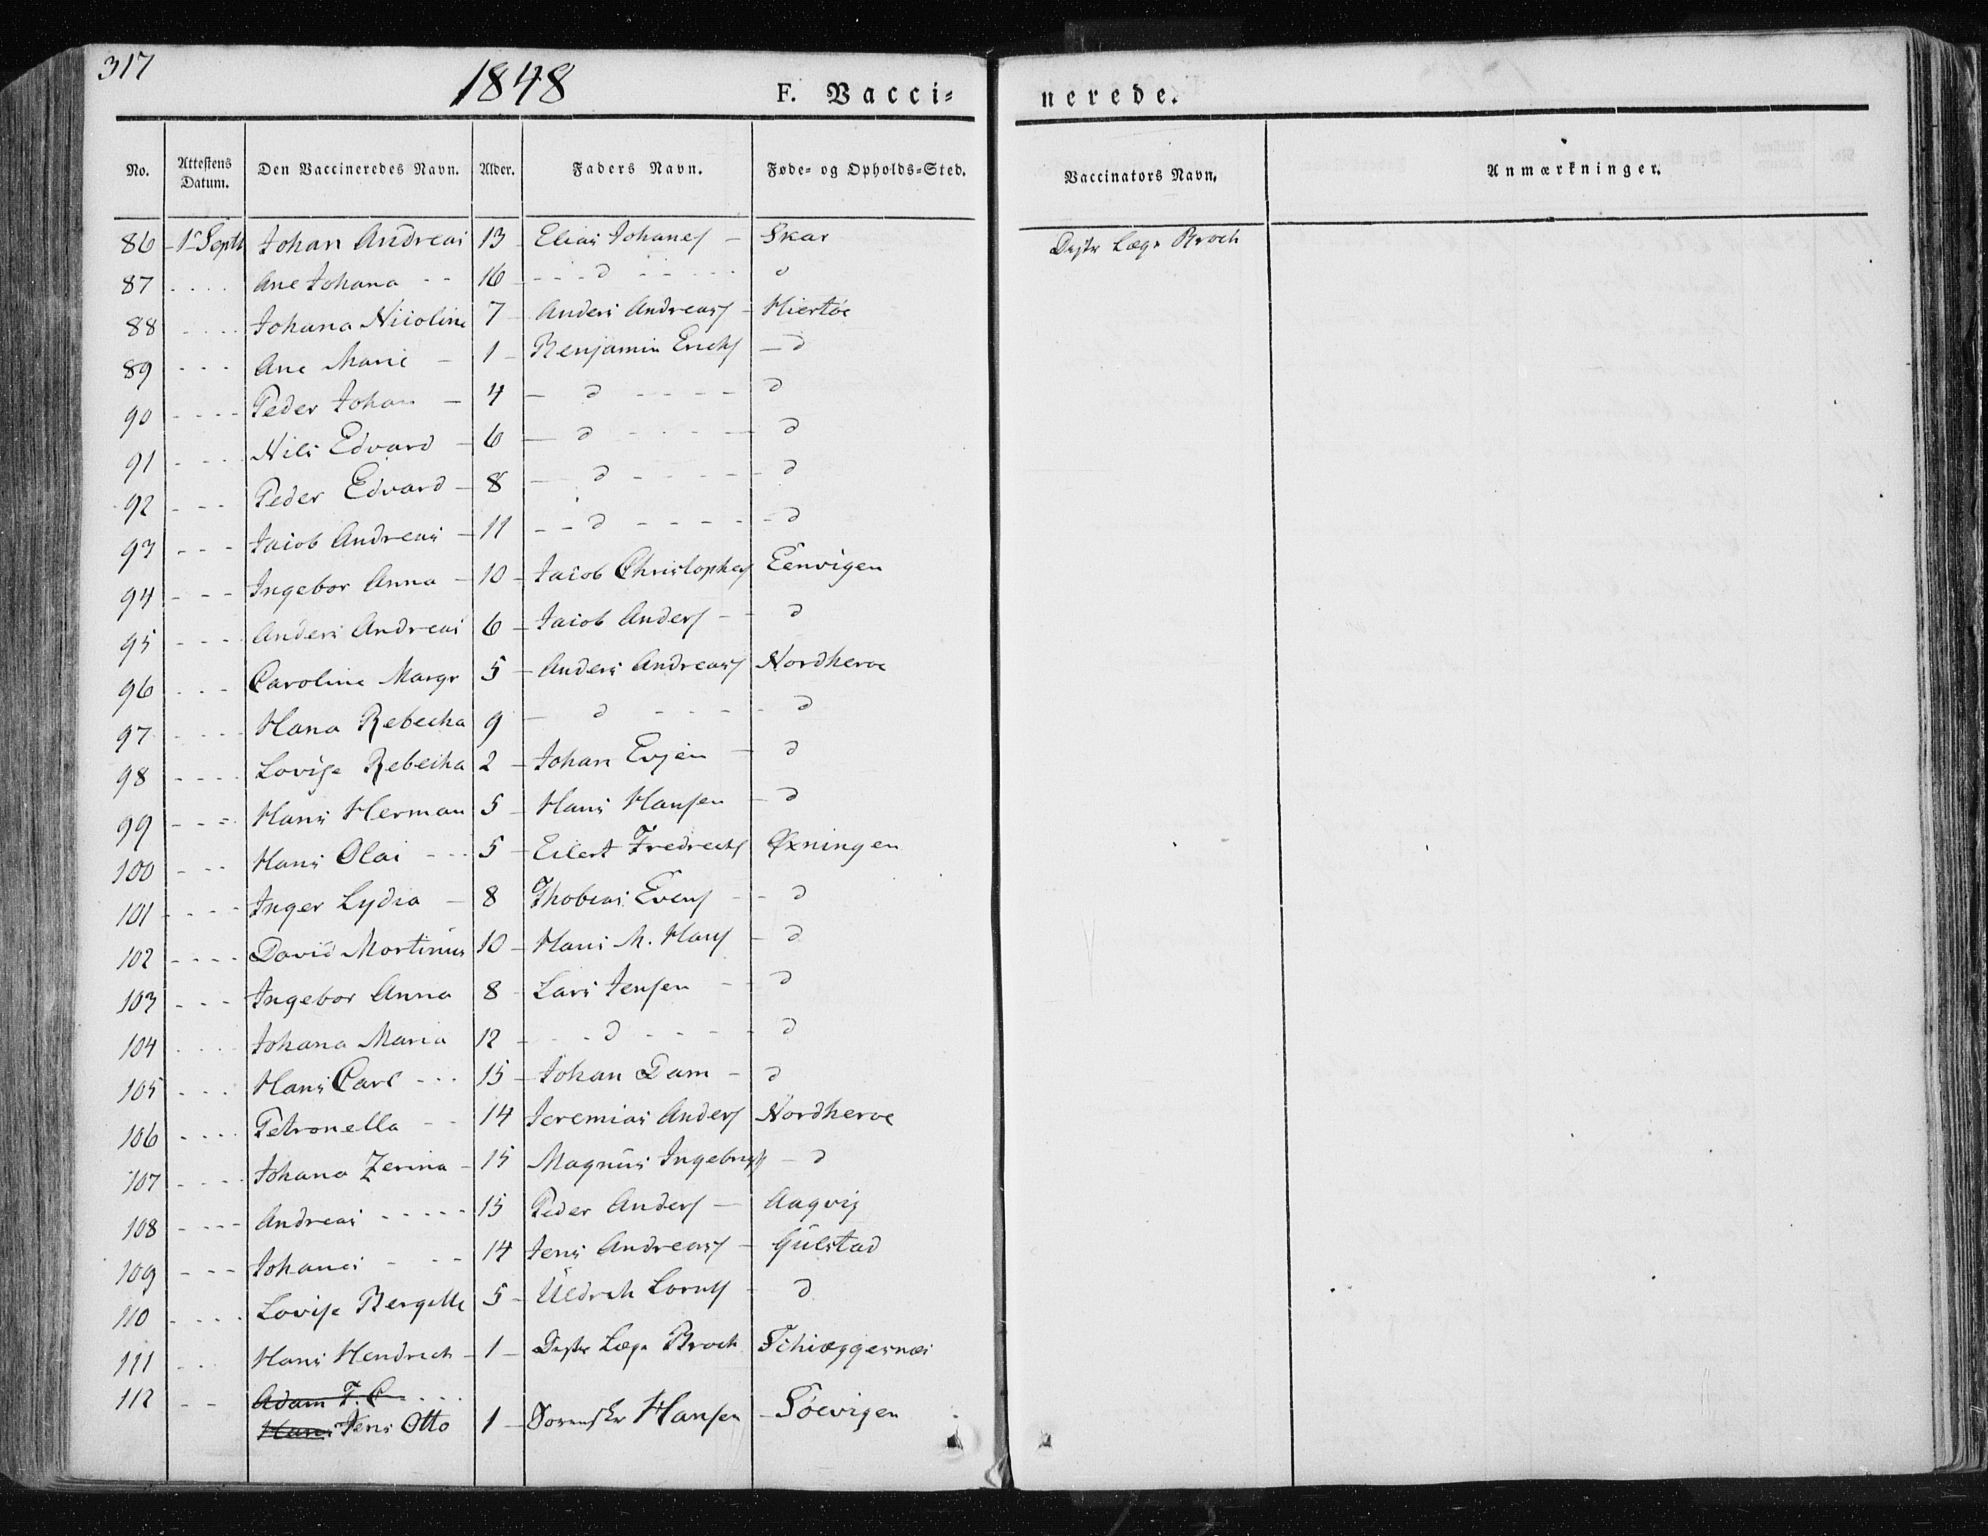 317
1848
F. Vacci=
nerede.
No. Attestens Datum. Den Vaccineredes Navn. Alder. Faders Navn. Føde- og Opholds-Sted. Vaccinators Navn. Anmærkninger.
86 - 1ste Septb Johan Andreas 13 Elias Johanes - Skar Distr Læge Broch
87 Ane Johana 16 d d
88 Johana Nicoline 7 Anders Andreass - Hiertøe
89 Ane Marie - 1 - Benjamin Erichs - d
90 Peder Johan - 4 - d d
91 Nils Edvard - 6 - d d
92 Peder Edvard - 8 - d d
93 Jacob Andreas - 11 - d d
94 Ingebor Anna - 10 - Jacob Christophes Eenvigen
95 Anders Andreas 6 - Jacob Anders - d
96 Caroline Margr 5 - Anders Andreass Nordherøe
97 Hana Rebecha 9 - d d
98 Lovise Rebecha 2 - Johan Evjen - d
99 Hans Herman 5 - Hans Hansen - d
100 Hans Olai 5 - Eilert Fredrechs Øxningen
101 Inger Lydia - 8 Thobias Evens - d
102 David Mortinus 10 - Hans M. Hans - d
103 Ingebor Anna 8 Lars Jensen - d
104 Johana Maria 12 d d
105 Hans Carl 15 - Johan Dam - d
106 Petronella 14 Jeremias Anders Nordherøe
107 Johana Zerina - 15 Magnus Ingebrigs - d
108 Andreas 15 Peder Anders - Aagvig
109 Johanes 14 Jens Andreass - Gulstad
110 Lovise Bergette 5 - Uldrch Lornts d
111 Hans Hendrich - 1 - Distr Læge Broch Schiæggesnæs
112 Adam F. C
Hans Jens Otto 1 - Sorenskr Hansen - Søevigen